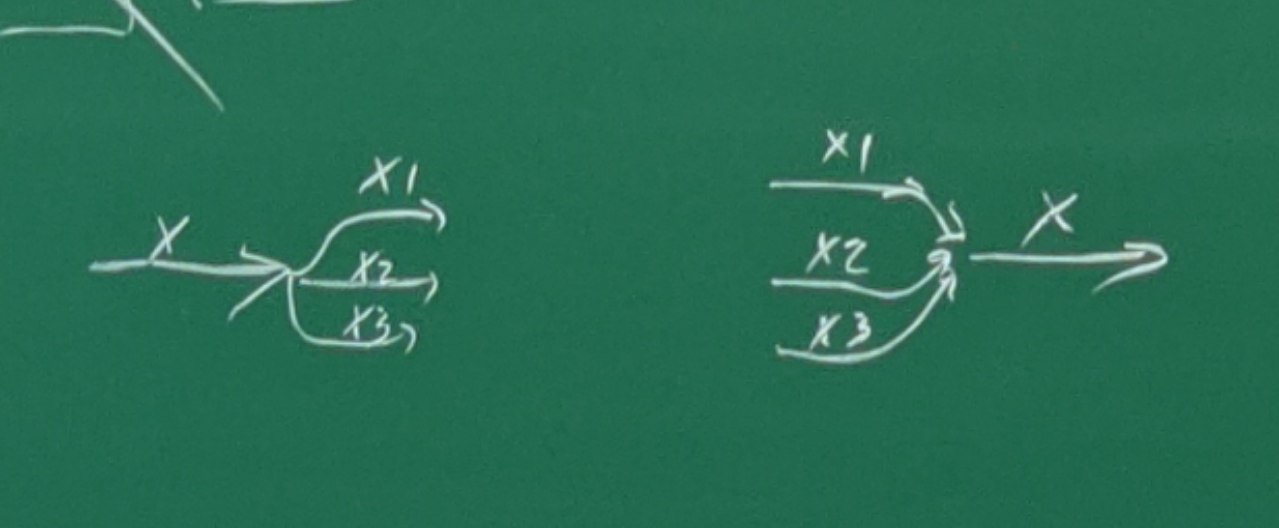 X1
X
X2
X3
X1
X2
X3
X